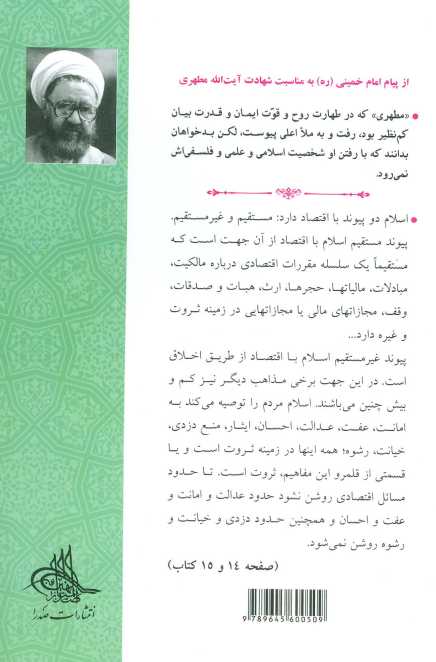 از پیام امام خمینی (ره) به مناسبت شهادت آیت‌الله مطهری
● «مطهری» که در طهارت روح و قوّت ایمان و قدرت بیان
کم‌نظیر بود، رفت و به ملأ اعلی پیوست، لکن بدخواهان
بدانند که با رفتن او شخصیت اسلامی و علمی و فلسفی‌اش
نمی‌رود.
● اسلام دو پیوند با اقتصاد دارد: مستقیم و غیرمستقیم.
پیوند مستقیم اسلام با اقتصاد از آن جهت است که
مستقیماً یک سلسله مقررات اقتصادی درباره مالکیت،
مبادلات، مالیاتها، حجرها، ارث، هبات و صدقات،
وقف، مجازاتهای مالی یا مجازاتهایی در زمینه ثروت
و غیره دارد...
پیوند غیرمستقیم اسلام با اقتصاد از طریق اخلاق
است. در این جهت برخی مذاهب دیگر نیز کم و
بیش چنین می‌باشند. اسلام مردم را توصیه می‌کند به
امانت، عفت، عدالت، احسان، ایثار، منع دزدی،
خیانت، رشوه؛ همه اینها در زمینه ثروت است و یا
قسمتی از قلمرو این مفاهیم، ثروت است. تا حدود
مسائل اقتصادی روشن نشود حدود عدالت و امانت و
عفت و احسان و همچنین حدود دزدی و خیانت و
رشوه روشن نمی‌شود.
(صفحه ۱۴ و ۱۵ کتاب)
انتشارات صدرا
9 789645 600509